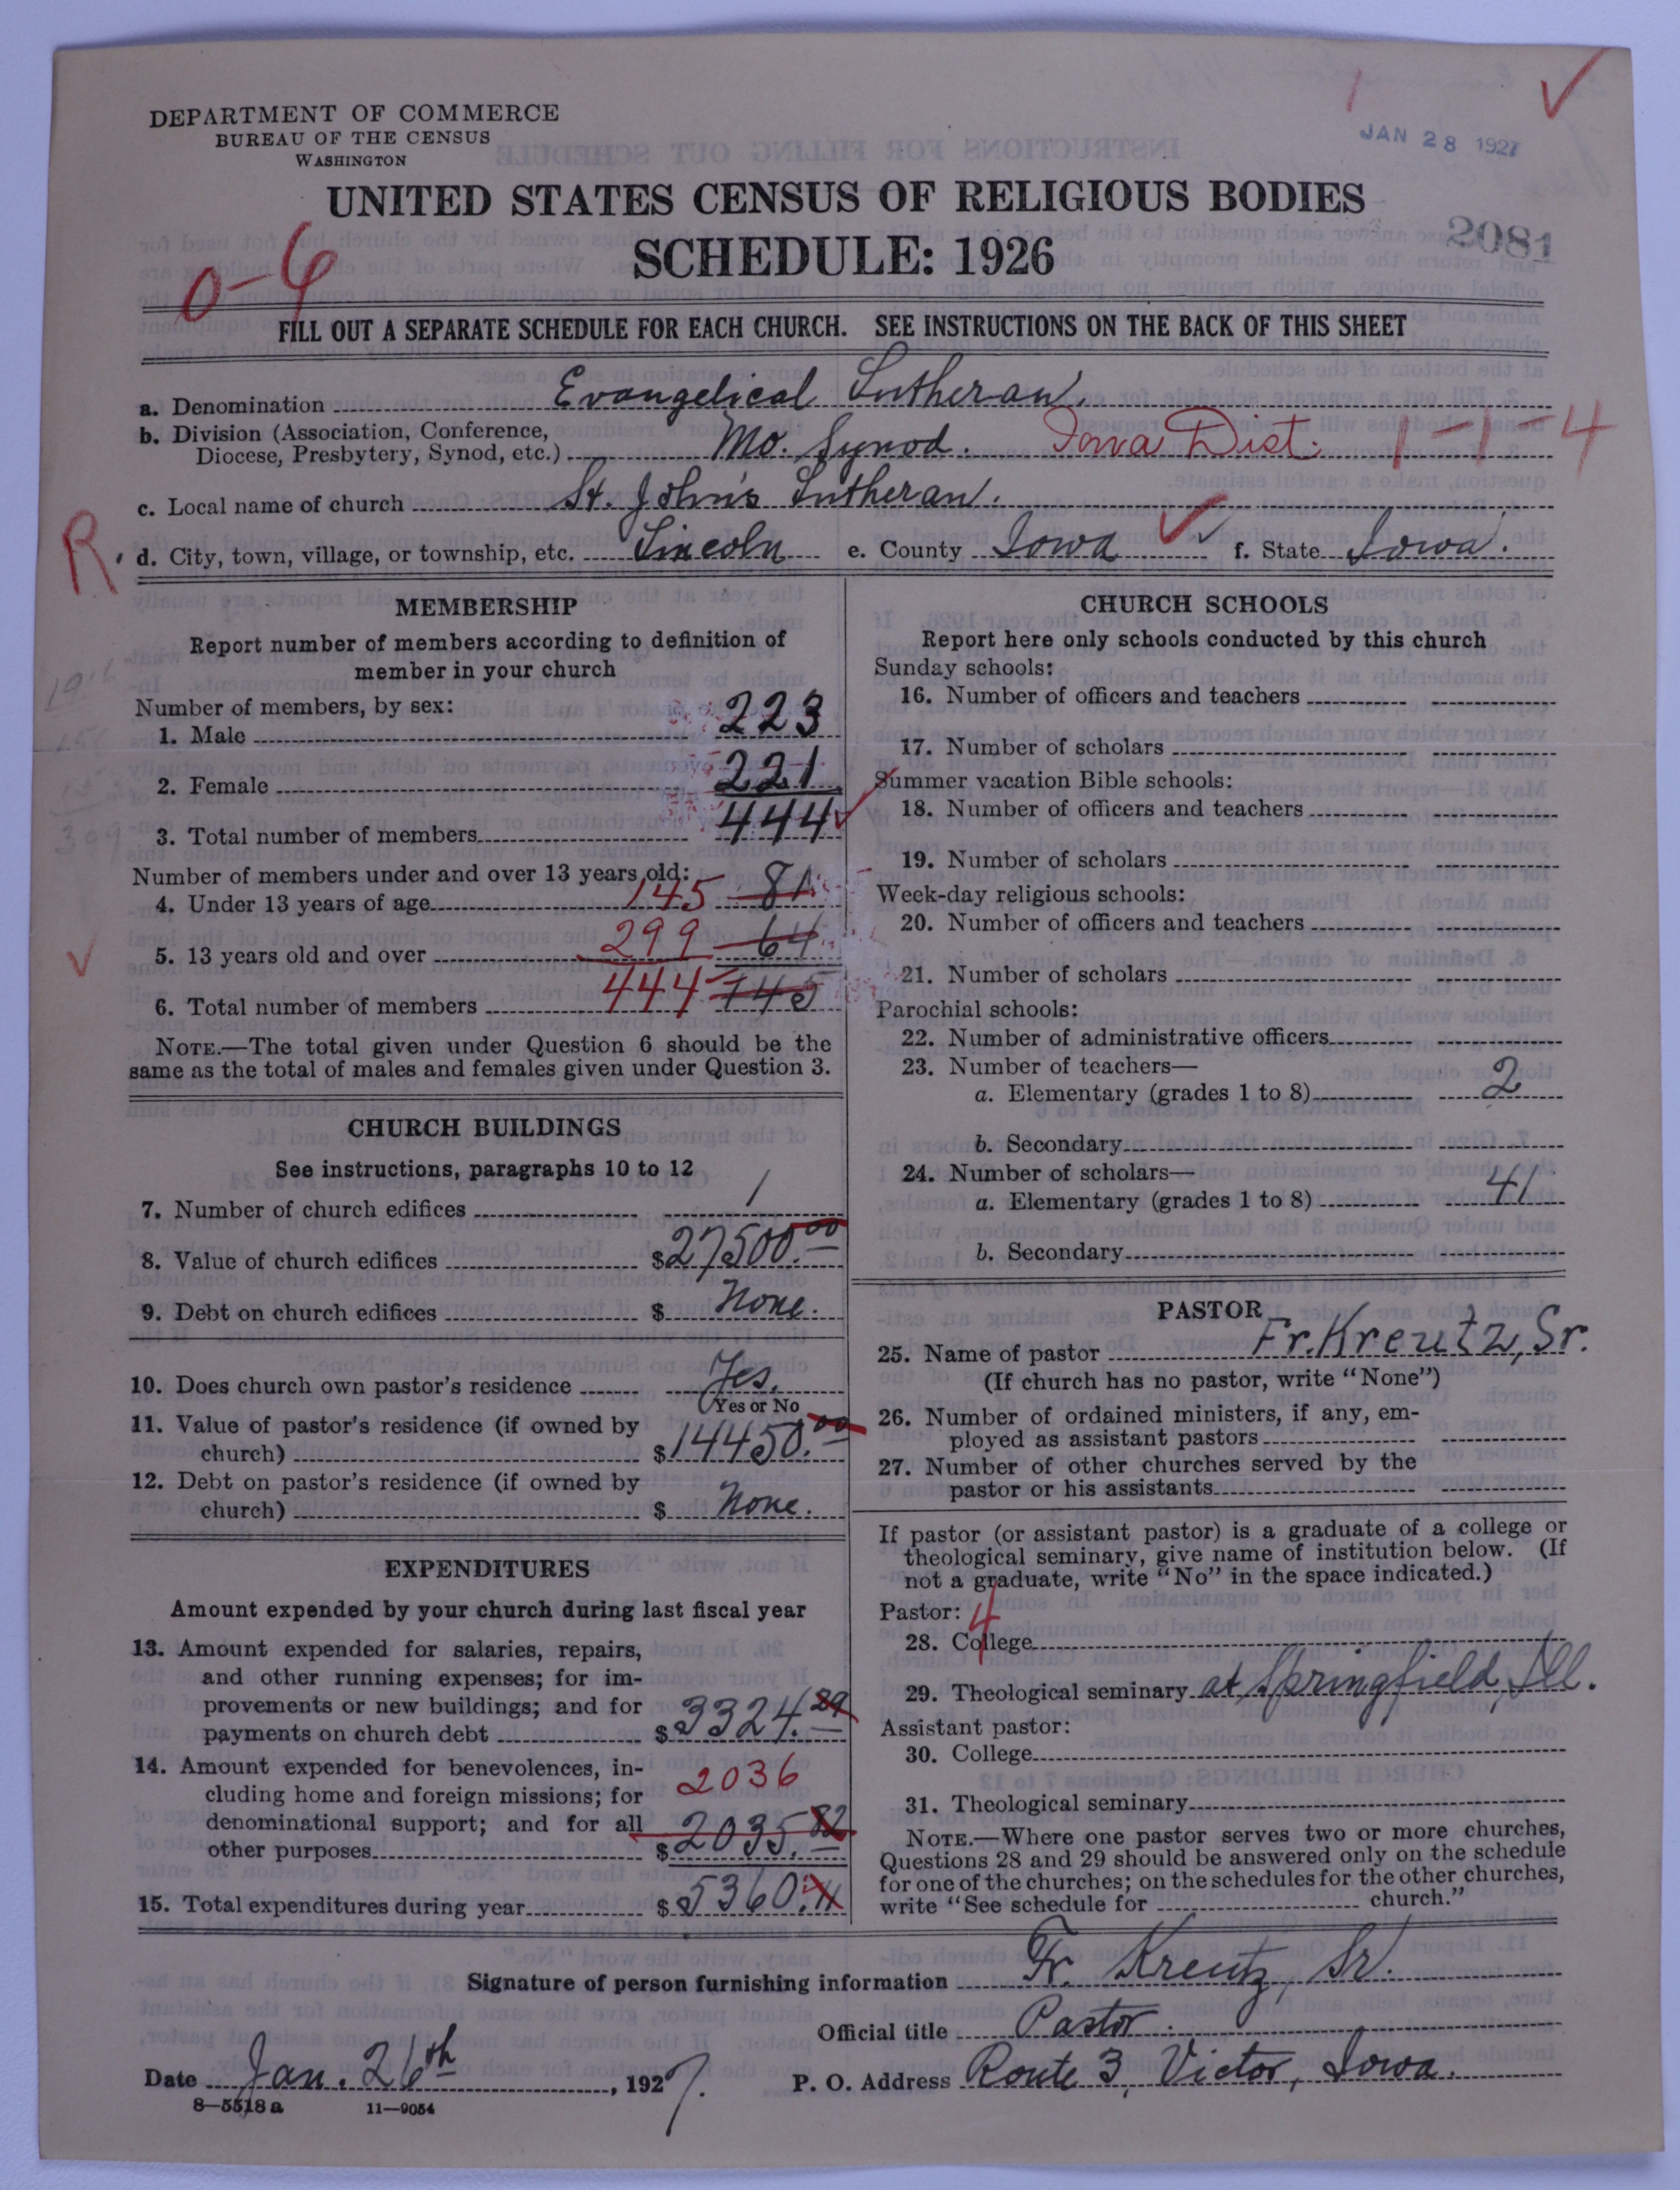 DEPARTMENT OF COMMERCE
BUREAU OF THE CENSUS
WASHINGTON
JAN 28 1927
UNITED STATES CENSUS OF RELIGIOUS BODIES
SCHEDULE: 1926
2081
0-6
FILL OUT A SEPARATE SCHEDULE FOR EACH CHURCH. SEE INSTRUCTIONS ON THE BACK OF THIS SHEET
a. Denomination Evangelical Lutheran.
b. Division (Association, Conference, Diocese, Presbytery, Synod, etc.) Mo. Synod. Iowa Dist. 1-1-4
c. Local name of church St. John's Lutheran.
R. d. City, town, village, or township, etc. Lincoln e. County Iowa f. State Iowa.
MEMBERSHIP
Report number of members according to definition of
member in your church
Number of members, by sex:
1. Male 223
2. Female 221
3. Total number of members 444
Number of members under and over 13 years old:
4. Under 13 years of age 145 81
5. 13 years old and over 299 64
6. Total number of members 444 145
NOTE.—The total given under Question 6 should be the
same as the total of males and females given under Question 3.
CHURCH BUILDINGS
See instructions, paragraphs 10 to 12
7. Number of church edifices 1
8. Value of church edifices $27500.00
9. Debt on church edifices $ None.
10. Does church own pastor's residence Yes.
Yes or No
11. Value of pastor's residence (if owned by
church) $14450.00
12. Debt on pastor's residence (if owned by
church) $ None.
EXPENDITURES
Amount expended by your church during last fiscal year
13. Amount expended for salaries, repairs,
and other running expenses; for im-
provements or new buildings; and for
payments on church debt $3324.29
14. Amount expended for benevolences, in-
cluding home and foreign missions; for 2036
denominational support; and for all
other purposes $2035.82
15. Total expenditures during year $5360.11
CHURCH SCHOOLS
Report here only schools conducted by this church
Sunday schools:
16. Number of officers and teachers
17. Number of scholars
Summer vacation Bible schools:
18. Number of officers and teachers
19. Number of scholars
Week-day religious schools:
20. Number of officers and teachers
21. Number of scholars
Parochial schools:
22. Number of administrative officers
23. Number of teachers—
a. Elementary (grades 1 to 8) 2
b. Secondary
24. Number of scholars—
a. Elementary (grades 1 to 8) 41
b. Secondary
PASTOR
25. Name of pastor Fr. Kreutz, Sr.
(If church has no pastor, write "None")
26. Number of ordained ministers, if any, em-
ployed as assistant pastors
27. Number of other churches served by the
pastor or his assistants
If pastor (or assistant pastor) is a graduate of a college or
theological seminary, give name of institution below. (If
not a graduate, write "No" in the space indicated.)
Pastor: 4
28. College
29. Theological seminary at Springfield, Ill.
Assistant pastor:
30. College
31. Theological seminary
NOTE.—Where one pastor serves two or more churches,
Questions 28 and 29 should be answered only on the schedule
for one of the churches; on the schedules for the other churches,
write "See schedule for church."
Signature of person furnishing information Fr. Kreutz, Sr.
Official title Pastor.
Date Jan. 26th, 1927. P. O. Address Route 3, Victor, Iowa.
8—5518a 11—9054